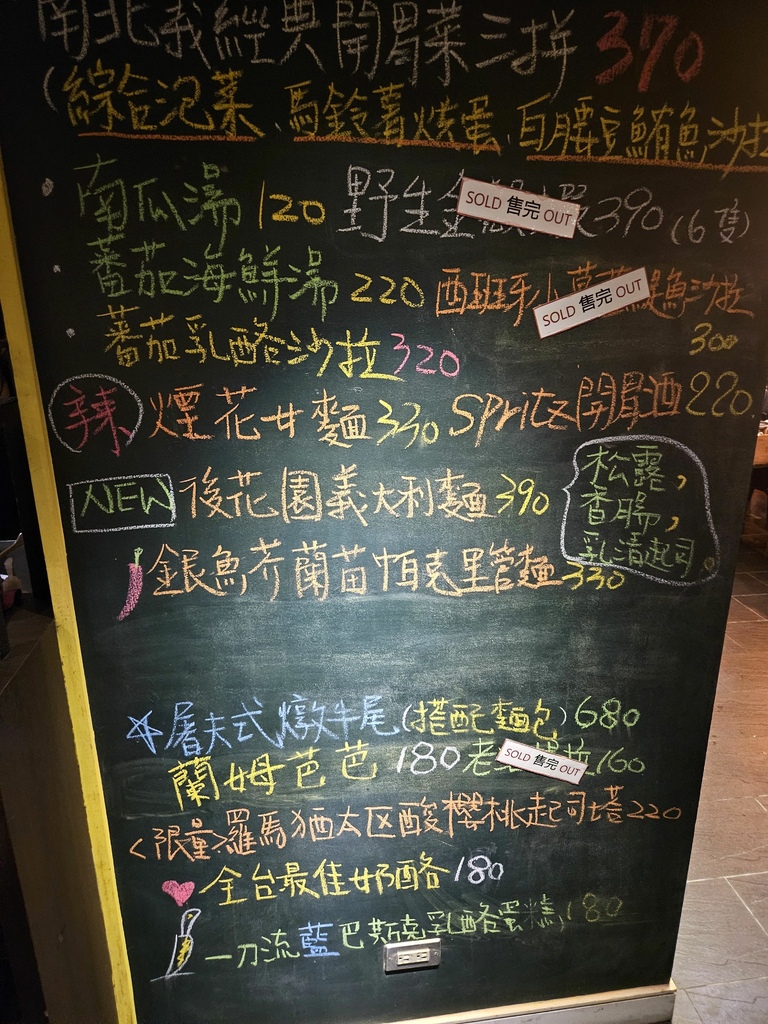 南北義經典開胃菜三拼 370
(綜合泡菜、馬鈴薯烘蛋、白腰豆鮪魚沙拉
南瓜湯 120 野生 SOLD 售完 OUT 蝦 390 (6隻)
蕃茄海鮮湯 220 西班牙小 SOLD 售完 OUT 魚沙拉
蕃茄乳酪沙拉 320 300
辣 煙花女麵 330 Spritz 開胃酒 220
NEW 後花園義大利麵 390 松露,
香腸,
乳清起司。
銀魚芥蘭苗帕克里管麵 330
屠夫式燉牛尾(搭配麵包) 680
蘭姆芭芭 180 老 SOLD 售完 OUT 160
<限量>羅馬猶太区酸櫻桃起司塔 220
全台最佳奶酪 180
一刀流藍巴斯克乳酪蛋糕 180